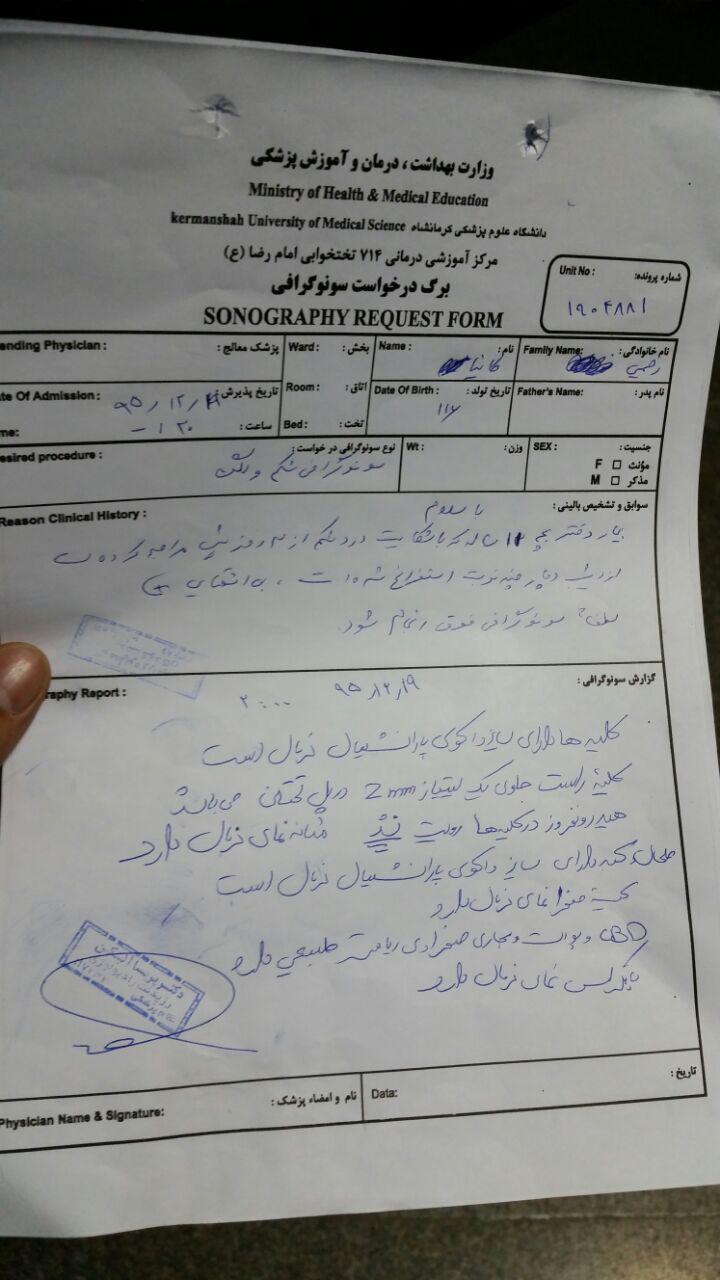 وزارت بهداشت ، درمان و آموزش پزشکی
Ministry of Health & Medical Education
دانشگاه علوم پزشکی کرمانشاه kermanshah University of Medical Science
مرکز آموزشی درمانی ۷۱۴ تختخوابی امام رضا (ع)
برگ درخواست سونوگرافی
SONOGRAPHY REQUEST FORM
شماره پرونده: Unit No :
۱۹۰۴۸۸۱
نام خانوادگی : Family Name: نام : Name : بخش : Ward : پزشک معالج : ending Physician :
رحیمی کانیا
نام پدر: Father's Name: تاریخ تولد : Date Of Birth : اتاق : Room : تاریخ پذیرش : te Of Admission :
تخت : Bed : ساعت : me:
جنسیت : SEX : وزن : Wt : نوع سونوگرافی در خواست : esired procedure :
مؤنث F
مذکر M
سونوگرافی شکم و لگن
سوابق و تشخیص بالینی : Reason Clinical History :
با سلام
بیمار دختر بچه ساله که با شکایت درد شکم از روز پیش مراجعه کرده
از دیشب دچار چند نوبت استفراغ شده است ، بی اشتهایی
لطفا سونوگرافی فوق انجام شود.
گزارش سونوگرافی : raphy Report :
۹۵/۱۲/۱۹ ۲۰:۰۰
کلیه ها دارای سایز و اکوی پارانشیمال نرمال است
کلیه راست حاوی یک لیتیاز 2mm در پل تحتانی می باشد
هیدرونفروز در کلیه ها رویت نشد مثانه نمای نرمال دارد
طحال کبد دارای سایز و اکوی پارانشیمال نرمال است
کیسه صفرا نمای نرمال دارد
CBD و پورت و مجاری صفراوی دیامتر طبیعی دارد
پانکراس نمای نرمال دارد
تاریخ : Data: نام و امضاء پزشک : Physician Name & Signature: